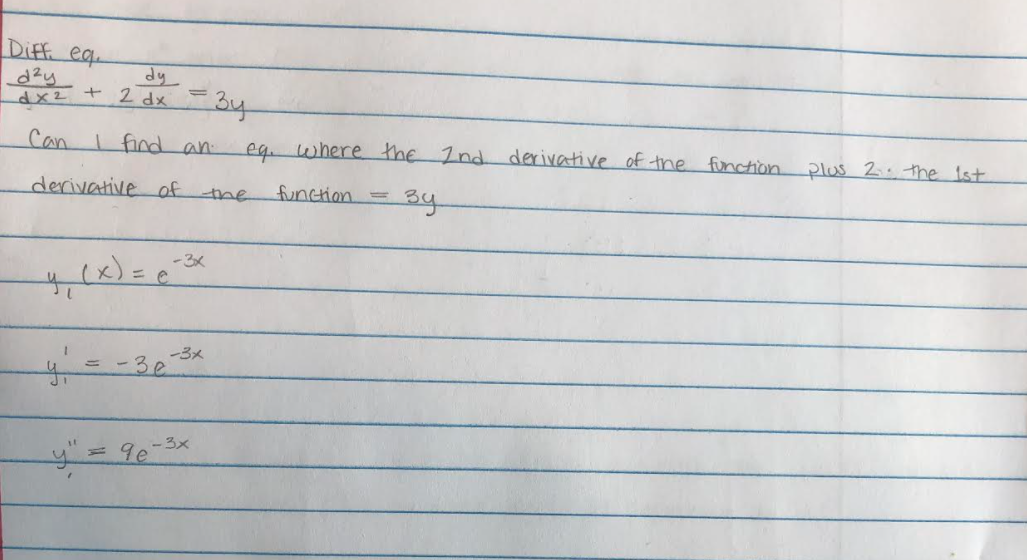 Diff. eq.
d²y/dx² + 2 dy/dx = 3y
Can I find an eq. where the 2nd derivative of the function plus 2 · the 1st
derivative of the function = 3y
y₁(x) = e^-3x
y₁' = -3e^-3x
y₁" = 9e^-3x